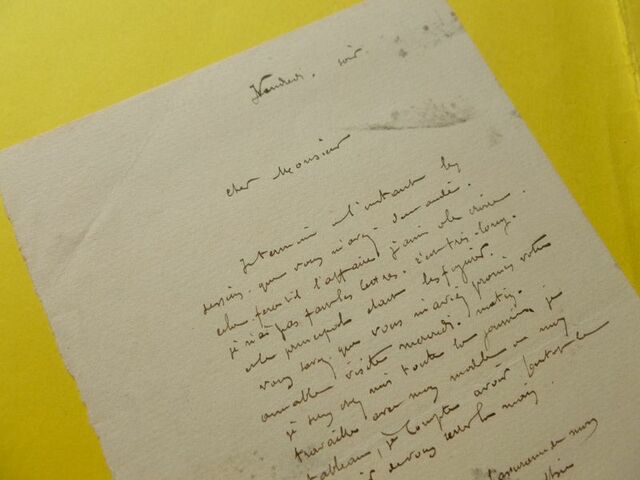 Vendredi, soir
Cher Monsieur
Je termine à l'instant les
dessins que vous m'avez demandé.
cela fera-t-il l'affaire j'aime à le croire.
je n'ai pas fait les lettres. c'est très-long.
le principal étant les figures.
vous savez que vous m'aviez promis votre
aimable visite mercredi. matin.
je suis chez moi toute la journée, je
travaille avec mon modèle à mon
tableau, je compte avoir
de vous serrer la main.
l'assurance de mes